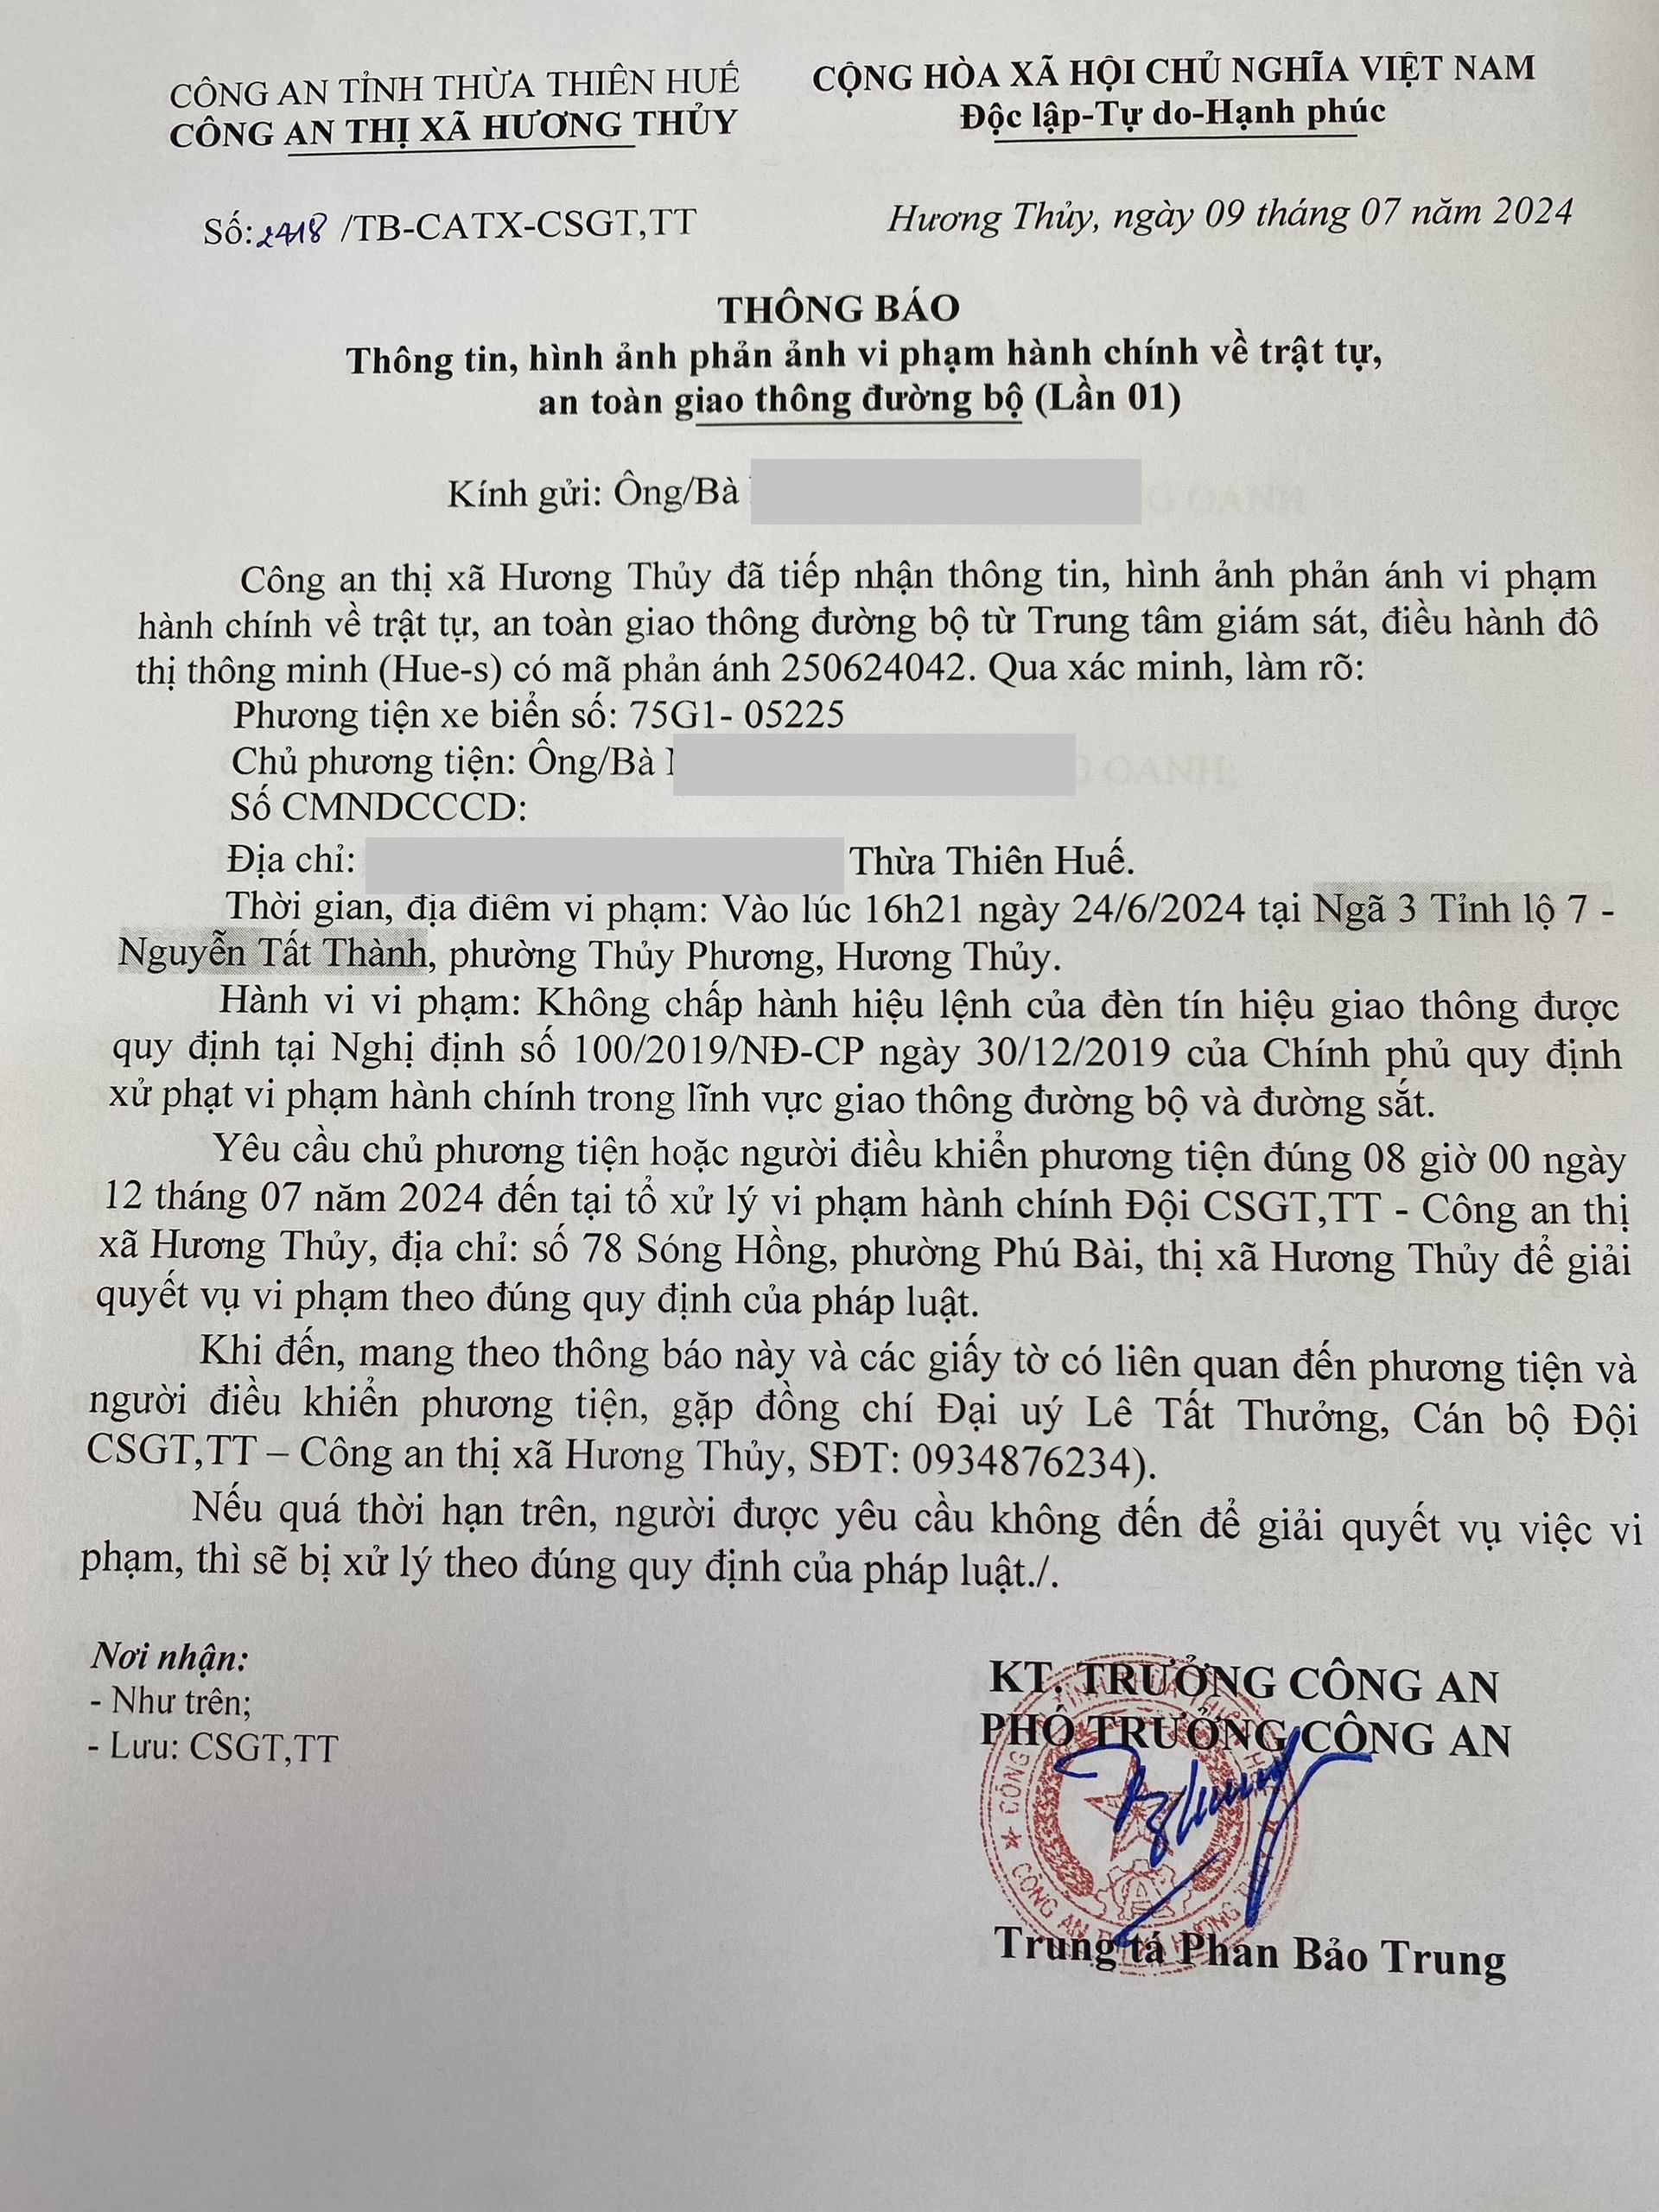 CÔNG AN TỈNH THỪA THIÊN HUẾ
CÔNG AN THỊ XÃ HƯƠNG THỦY
CỘNG HÒA XÃ HỘI CHỦ NGHĨA VIỆT NAM
Độc lập-Tự do-Hạnh phúc
Số: 2418 /TB-CATX-CSGT,TT
Hương Thủy, ngày 09 tháng 07 năm 2024
THÔNG BÁO
Thông tin, hình ảnh phản ảnh vi phạm hành chính về trật tự,
an toàn giao thông đường bộ (Lần 01)
Kính gửi: Ông/Bà
Công an thị xã Hương Thủy đã tiếp nhận thông tin, hình ảnh phản ánh vi phạm
hành chính về trật tự, an toàn giao thông đường bộ từ Trung tâm giám sát, điều hành đô
thị thông minh (Hue-s) có mã phản ánh 250624042. Qua xác minh, làm rõ:
Phương tiện xe biển số: 75G1- 05225
Chủ phương tiện: Ông/Bà
Số CMNDCCCD:
Địa chỉ: Thừa Thiên Huế.
Thời gian, địa điểm vi phạm: Vào lúc 16h21 ngày 24/6/2024 tại Ngã 3 Tỉnh lộ 7 -
Nguyễn Tất Thành, phường Thủy Phương, Hương Thủy.
Hành vi vi phạm: Không chấp hành hiệu lệnh của đèn tín hiệu giao thông được
quy định tại Nghị định số 100/2019/NĐ-CP ngày 30/12/2019 của Chính phủ quy định
xử phạt vi phạm hành chính trong lĩnh vực giao thông đường bộ và đường sắt.
Yêu cầu chủ phương tiện hoặc người điều khiển phương tiện đúng 08 giờ 00 ngày
12 tháng 07 năm 2024 đến tại tổ xử lý vi phạm hành chính Đội CSGT,TT - Công an thị
xã Hương Thủy, địa chỉ: số 78 Sóng Hồng, phường Phú Bài, thị xã Hương Thủy để giải
quyết vụ vi phạm theo đúng quy định của pháp luật.
Khi đến, mang theo thông báo này và các giấy tờ có liên quan đến phương tiện và
người điều khiển phương tiện, gặp đồng chí Đại uý Lê Tất Thưởng, Cán bộ Đội
CSGT,TT – Công an thị xã Hương Thủy, SĐT: 0934876234).
Nếu quá thời hạn trên, người được yêu cầu không đến để giải quyết vụ việc vi
phạm, thì sẽ bị xử lý theo đúng quy định của pháp luật./.
Nơi nhận:
- Như trên;
- Lưu: CSGT,TT
KT. TRƯỞNG CÔNG AN
PHÓ TRƯỞNG CÔNG AN
Trung tá Phan Bảo Trung